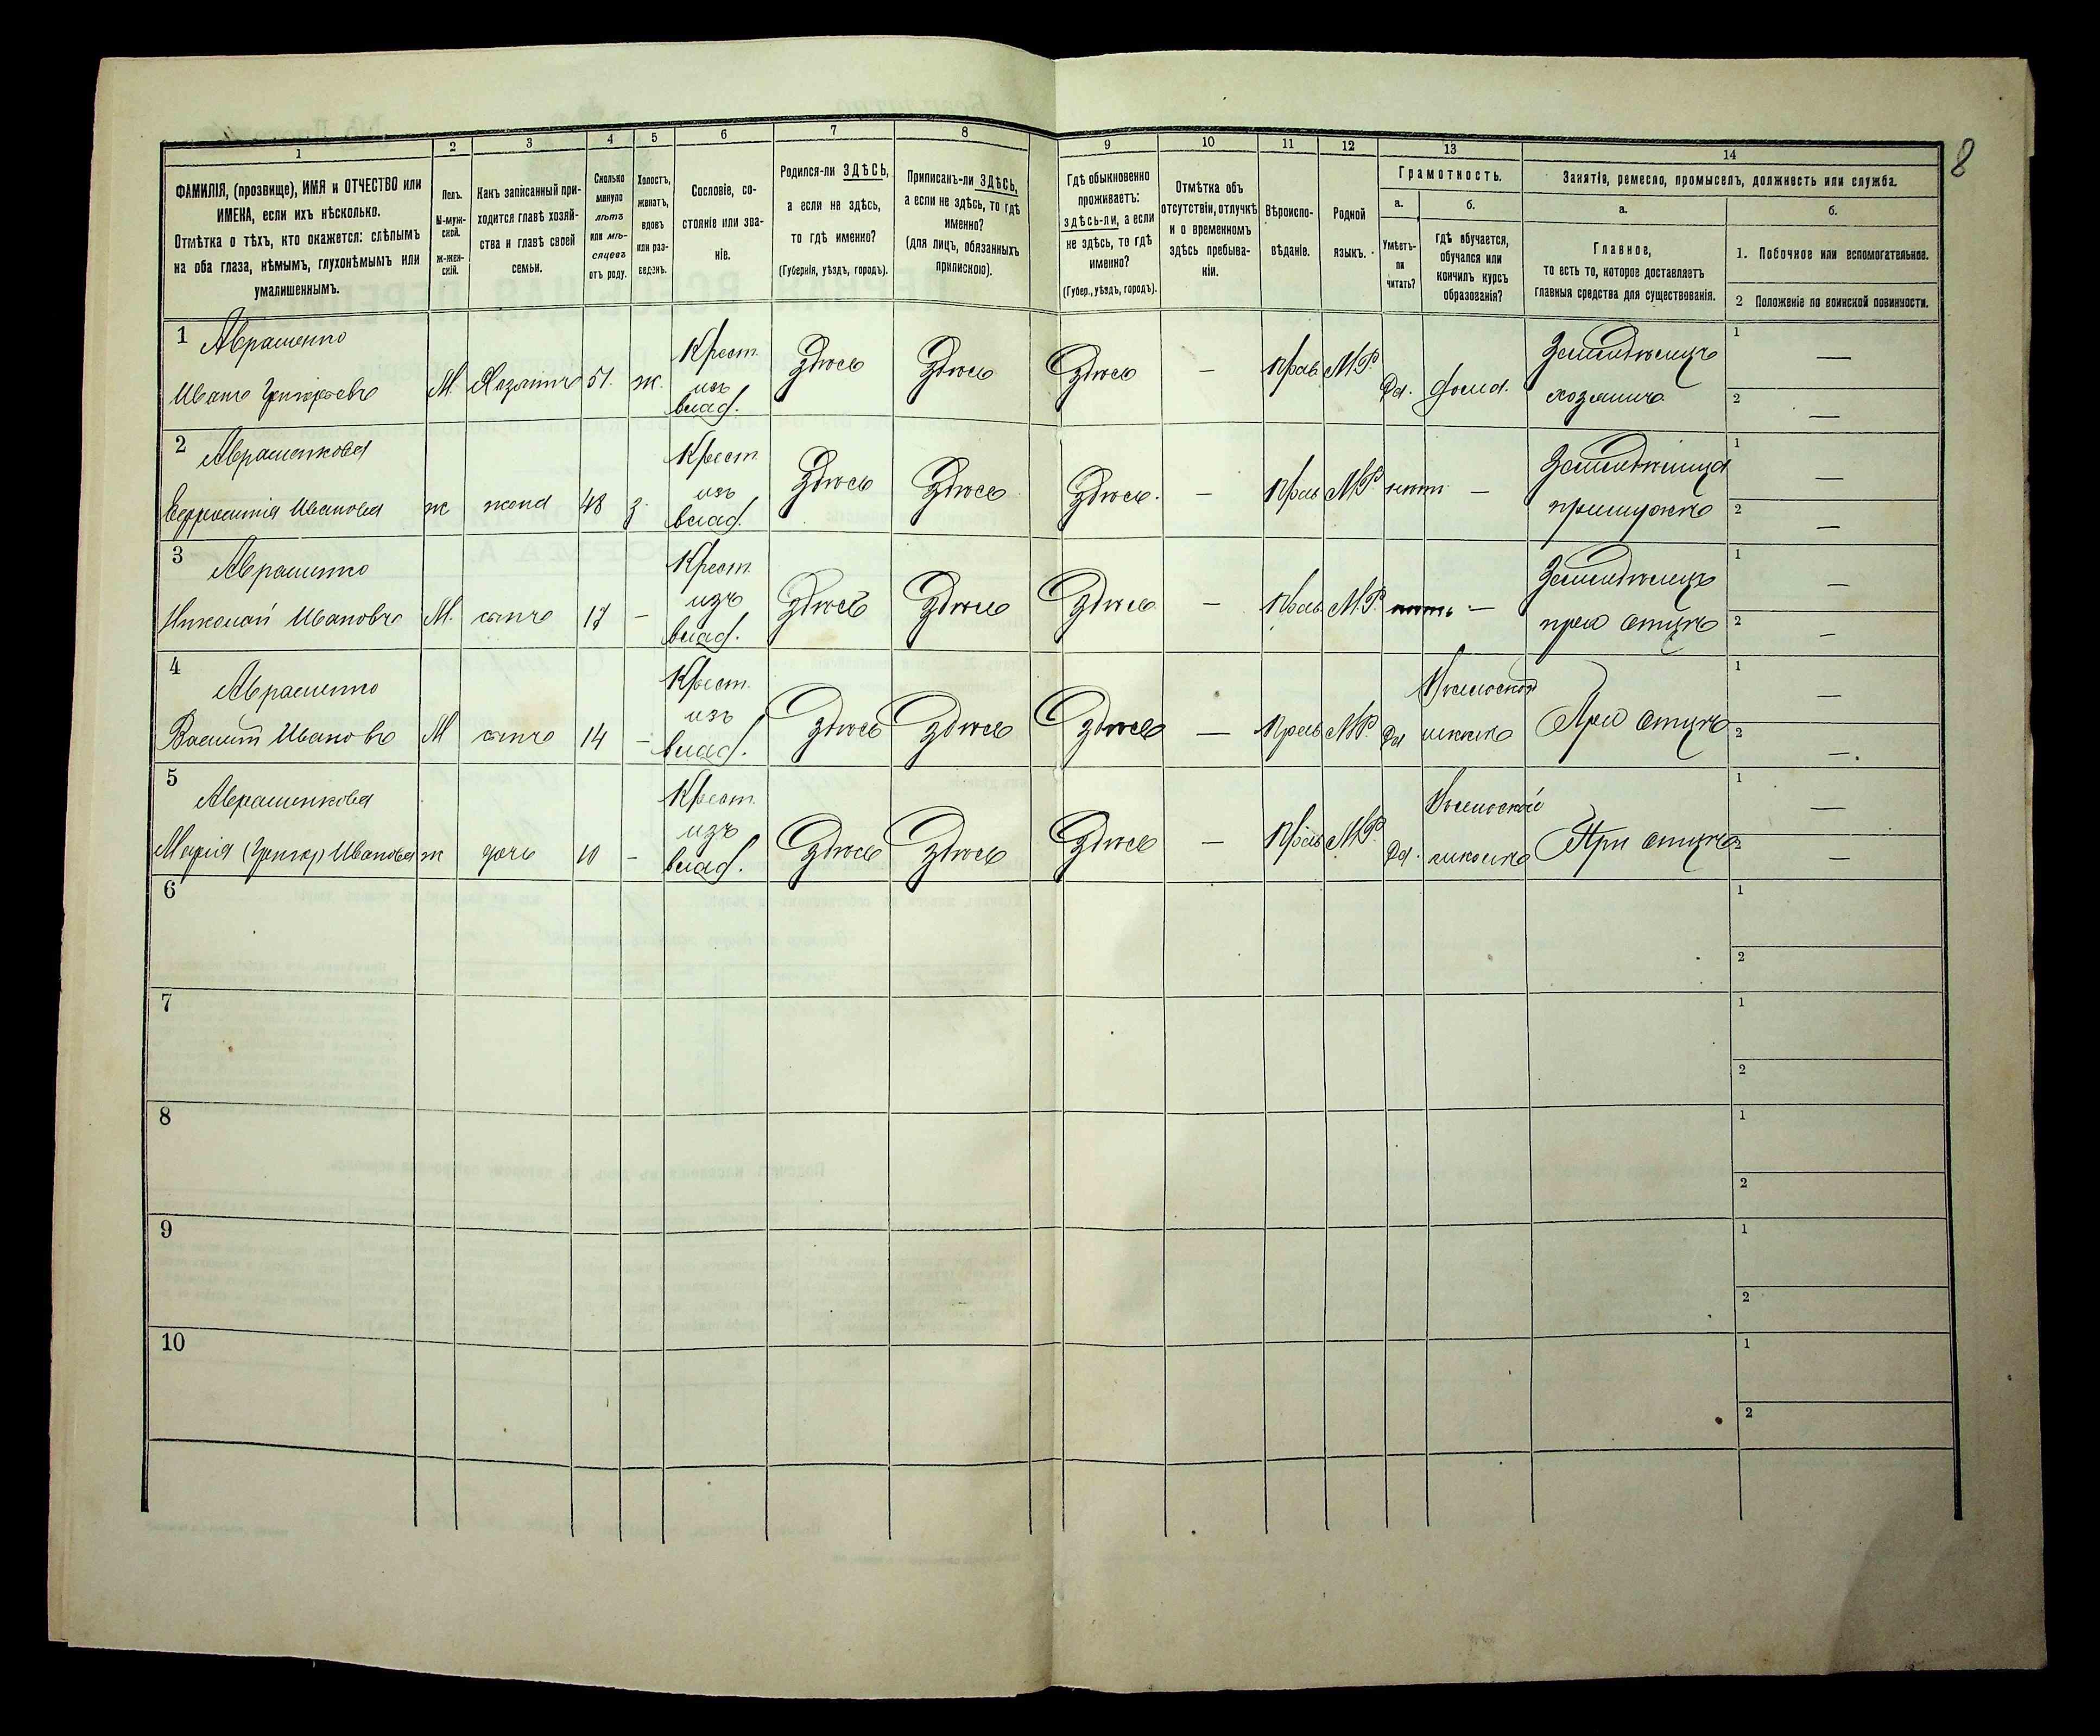 8
1 2 3 4 5 6 7 8 9 10 11 12 13 14
ФАМИЛІЯ, (прозвище), ИМЯ и ОТЧЕСТВО или
ИМЕНА, если ихъ нѣсколько.
Отмѣтка о тѣхъ, кто окажется: слѣпымъ
на оба глаза, нѣмымъ, глухонѣмымъ или
умалишеннымъ.
Полъ.
М-муж-
ской.
Ж-жен-
скій.
Какъ записанный при-
ходится главѣ хозяй-
ства и главѣ своей
семьи.
Сколько
минуло
лѣтъ
или мѣ-
сяцевъ
отъ роду.
Холостъ,
женатъ,
вдовъ
или раз-
веденъ.
Сословіе, со-
стояніе или зва-
ніе.
Родился-ли ЗДѢСЬ,
а если не здѣсь,
то гдѣ именно?
(Губернія, уѣздъ, городъ).
Приписанъ-ли ЗДѢСЬ,
а если не здѣсь, то гдѣ
именно?
(для лицъ, обязанныхъ
припискою).
Гдѣ обыкновенно
проживаетъ:
здѣсь-ли, а если
не здѣсь, то гдѣ
именно?
(Губер., уѣздъ, городъ).
Отмѣтка объ
отсутствіи, отлучкѣ
и о временномъ
здѣсь пребыва-
ніи.
Вѣроиспо-
вѣданіе.
Родной
языкъ.
Грамотность.
а.
Умѣетъ-
ли
читать?
б.
гдѣ обучается,
обучался или
кончилъ курсъ
образованія?
Занятія, ремесло, промыселъ, должность или служба.
а.
Главное,
то есть то, которое доставляетъ
главныя средства для существованія.
б.
1. Побочное или вспомогательное.
2 Положеніе по воинской повинности.
1 Авраменко
Иванъ Григорьевъ М. Хозяинъ 51. ж. Крест. изъ влад. Здѣсь Здѣсь Здѣсь — Прав. М.Р. Да. дома. Земледѣлецъ хозяинъ 1 — 2 —
2 Авраменкова
Евфросинія Иванова ж жена 48 з. Крест. изъ влад. Здѣсь Здѣсь Здѣсь. — Прав М.Р. нѣтъ — Земледѣлица при мужѣ 1 — 2 —
3 Авраменко
Николай Ивановъ М. сынъ 17 — Крест. изъ влад. Здѣсь Здѣсь Здѣсь — Прав. М.Р. нѣтъ — Земледѣлецъ при отцѣ 1 — 2 —
4 Авраменко
Василій Ивановъ М сынъ 14 — Крест. изъ влад. Здѣсь Здѣсь Здѣсь — Прав М.Р. Да школѣ При отцѣ 1 — 2 —
5 Авраменкова
Марія (Григор) Иванова ж дочь 10 — Крест. изъ влад. Здѣсь Здѣсь Здѣсь — Прав М.Р. Да. школѣ При отцѣ 1 — 2 —
6 1 2
7 1 2
8 1 2
9 1 2
10 1 2